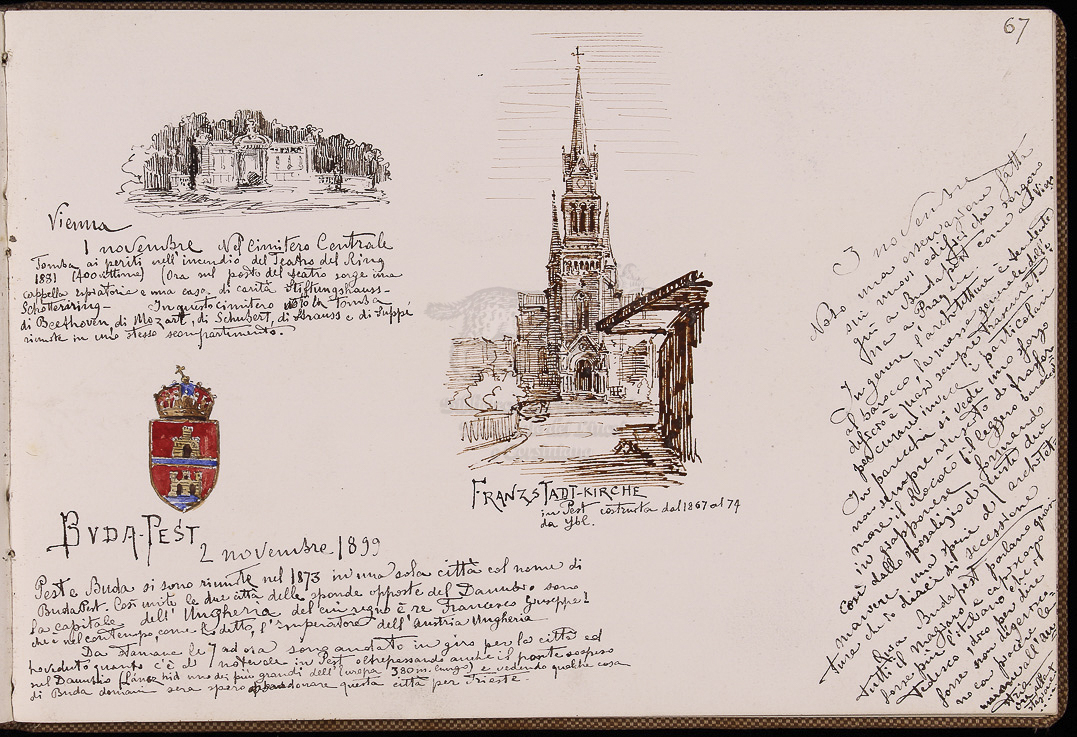 67
Vienna
1 novembre Nel Cimitero Centrale
Tomba ai periti nell'incendio del Teatro del Ring
1881 (400 vittime) (Ora sul posto del teatro sorge una
cappella espiatoria e una casa di carità Stiftungshauss-
Schottenring- In questo cimitero noto la tomba
di Beethoven, di Mozart, di Schubert, di Strauss e di Suppé
riunite in uno stesso scompartimento.
FRANZSTADT-KIRCHE
in Pest costrutta dal 1867 al 74
da Ybl.
BUDA-PEST
2 novembre 1899
Pest e Buda si sono riunite nel 1873 in una sola città col nome di
BudaPest. Così unite le due città delle sponde opposte del Danubio sono
la capitale dell'Ungheria del cui regno è re Francesco Giuseppe I
che è nel contempo, come è detto, l'Imperatore dell'Austria Ungheria
Da stamane le 7 ad ora sono andato in giro per la città ed
ho veduto quanto c'è di notevole in Pest oltrepassando anche il ponte sospeso
sul Danubio (Lánczhid uno dei più grandi dell'Europa 380 m. lungo) e vedendo qualche cosa
di Buda domani sera spero abbandonare questa città per Trieste.
3 novembre
Noto una osservazione fatta
sui nuovi edifici che sorgono
qui a Budapest così
fra a Praga e a Vienna
In genere l'architettura è tendente
al barocco, la massa generale dello
edificio è quasi sempre tormentata
per curarsi invece i particolari
In parecchi si vede uno sforzo
non sempre riuscito di sfoggiare
more il rococò più leggero
in giapponese fornendo
così dallo sposalizio di questi due
maniere una specie di architet-
ture che io direi di secessione
Qui a Budapest parlano quasi
tutti il magiaro e capiscono
forse più l'italiano che il
tedesco